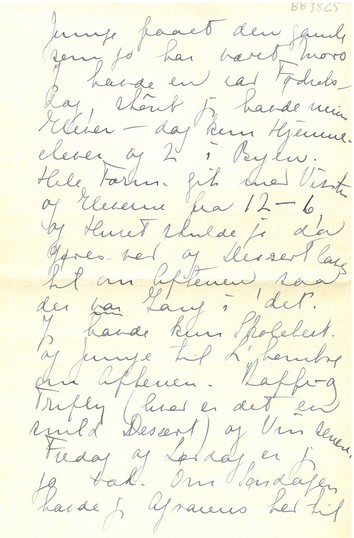 BB3825
Junge faaet den gamle
som jo har været moro
Jeg havde en rar Fødsels-
dag, skønt jeg havde mine
Elever — dog kun Hjemme-
elever og 2 i Byen.
Hele Form. gik med Visitter
og Eleverne fra 12–6,
og Huset skulde jo da
gøres ved og Dessert laves
til om Aftenen saa
der var Gang i det.
Jeg havde kun
og Junge til L'hombre
om Aftenen. Kaffe og
Trifly (hver er det en
mild Dessert) og Vin senere.
Fredag og Lørdag er jeg
jo væk. Om Søndagen
havde jeg Agrarens her til